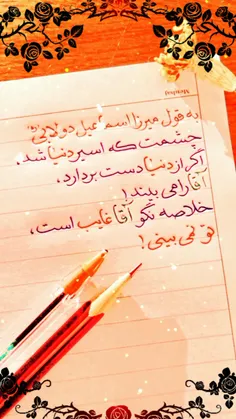 به قول میرزا اسماعیل دولابی:
چشمت که اسیر دنیا شد،
اگر از دنیا دست بردارد،
آقا را می بیند!
خلاصه نگو آقا غایب است،
تو نمی بینی!